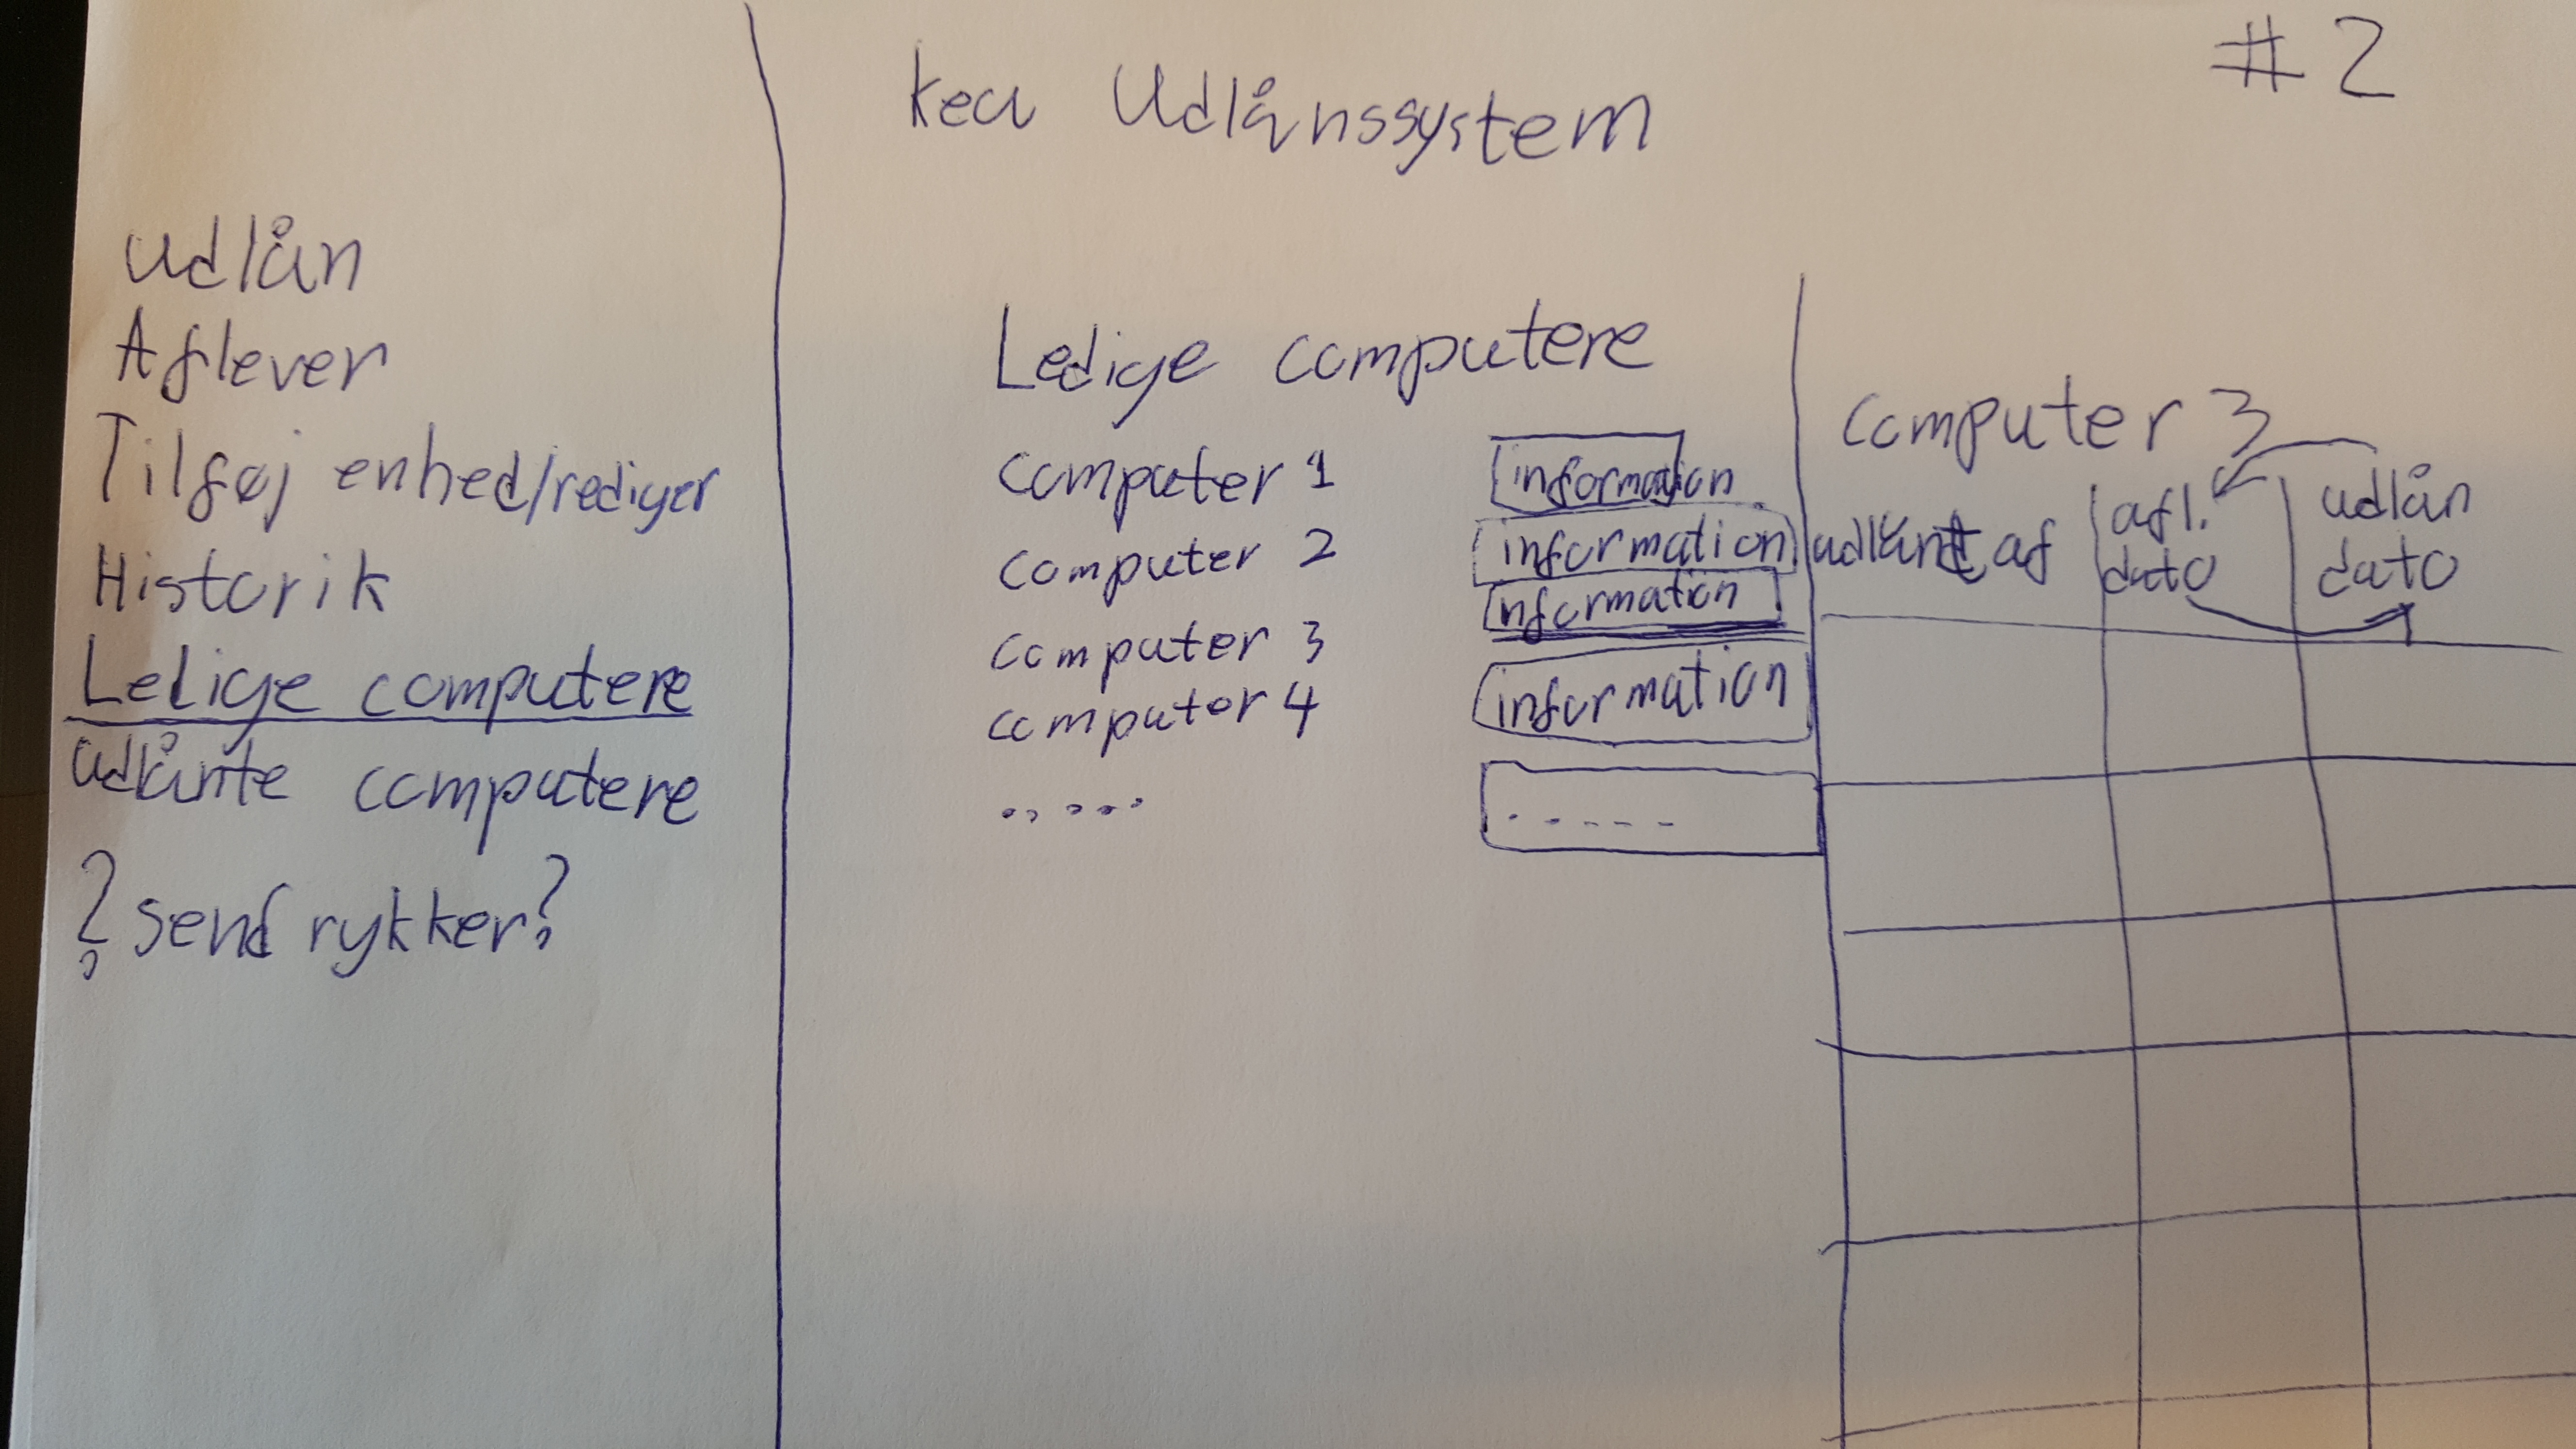 #2
Kea Udlånssystem
Udlån
Aflever
Tilføj enhed/rediger
Historik
Ledige computere
Udlånte computere
? send rykker?
Ledige computere
Computer 1 information
Computer 2 information
Computer 3 information
Computer 4 information
..... .....
Computer 3
udlånt af
afl. dato
udlån dato